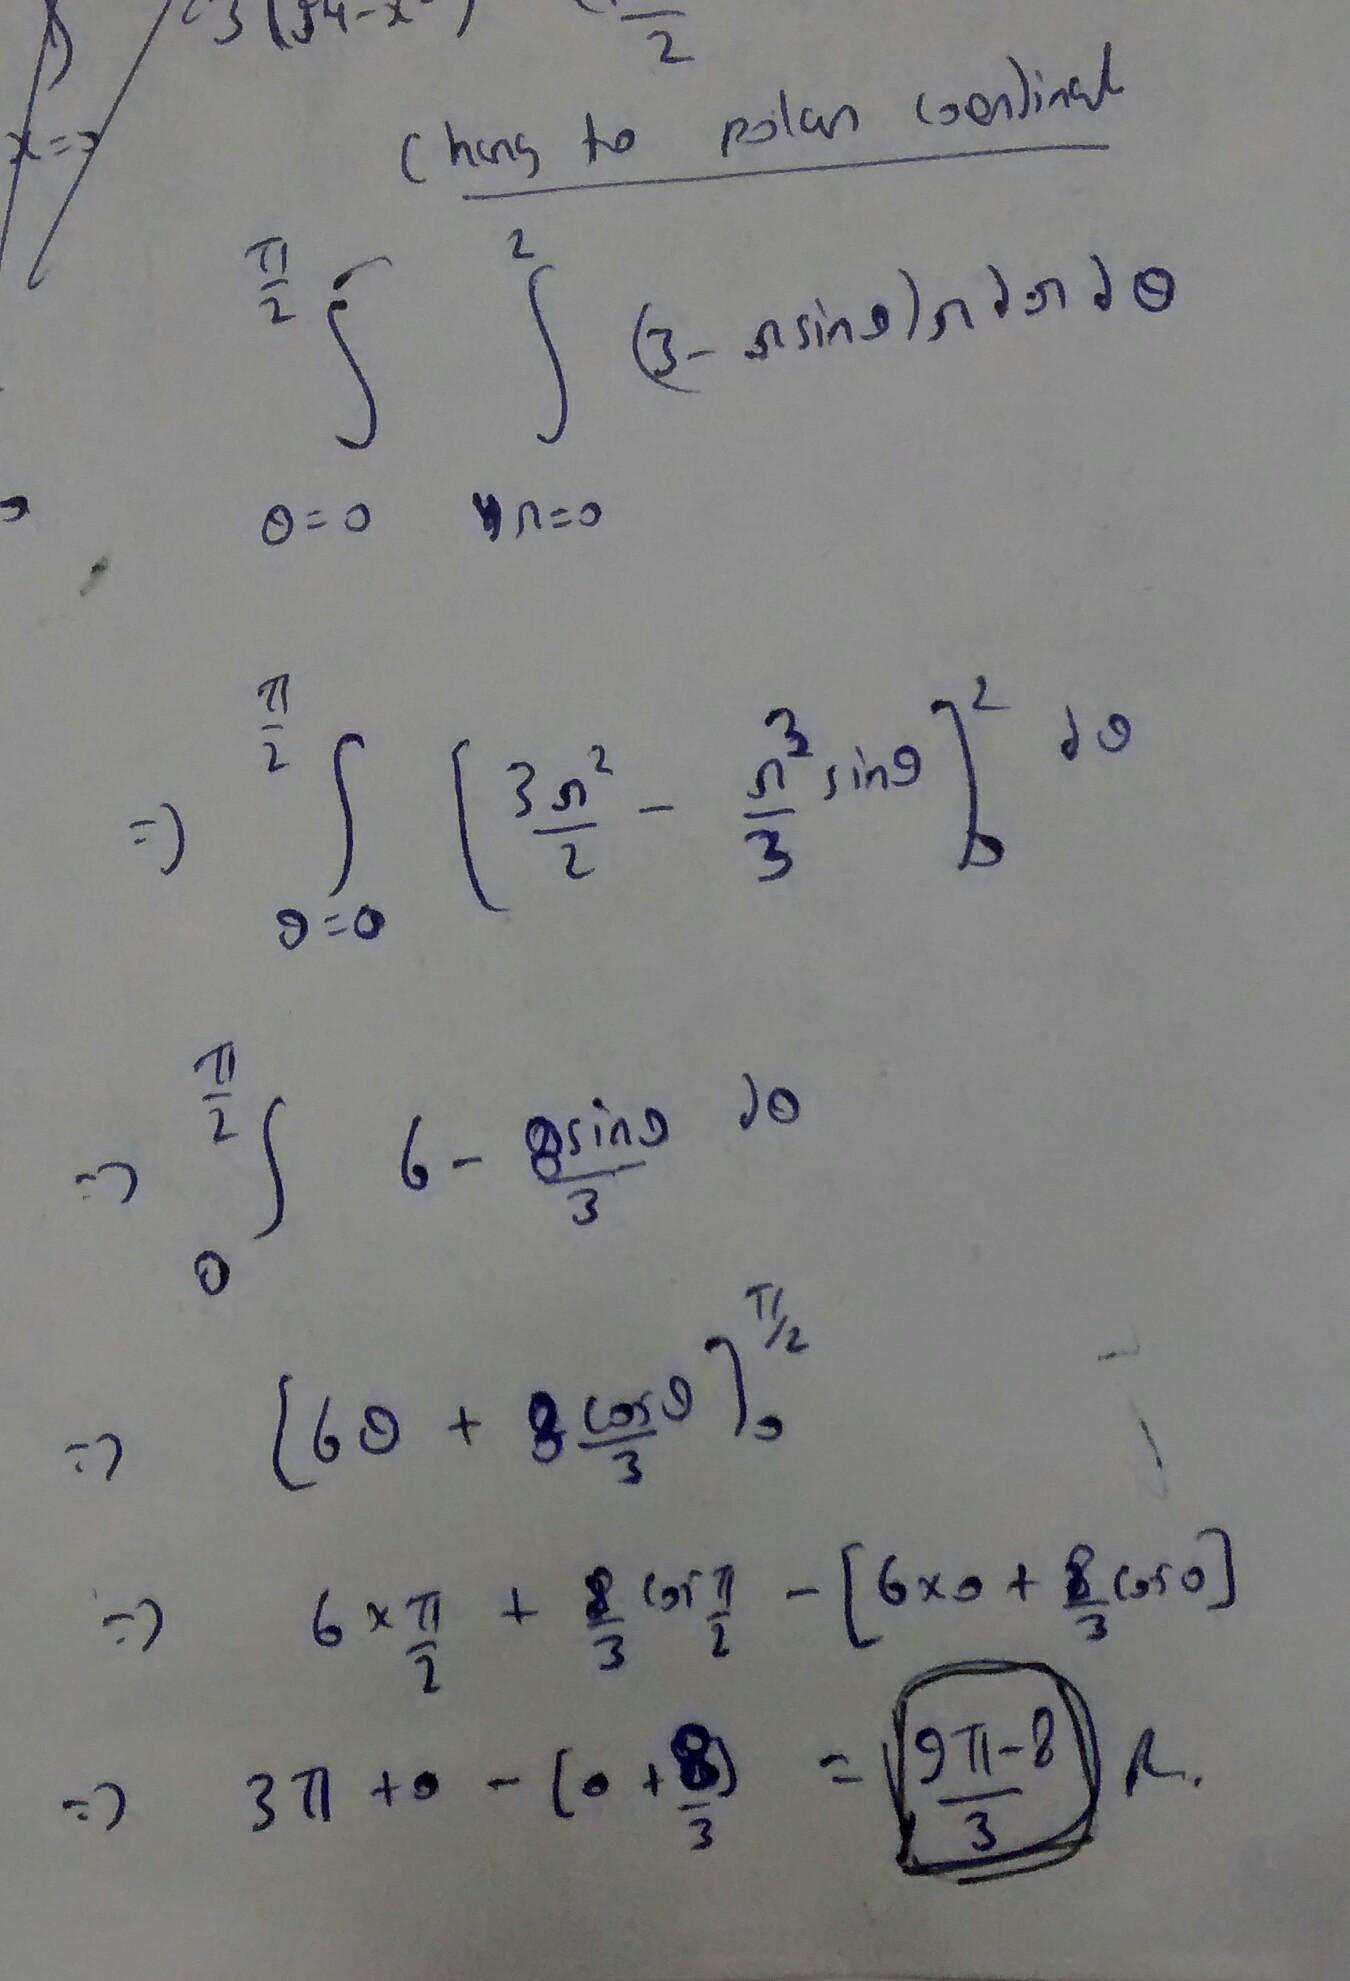 3(√4-x²)
2
x=0
Chang to polar coordinate
π/2 ∫ θ=0 2 ∫ r=0 (3- r sinθ) r dr dθ
=) π/2 ∫ θ=0 [3r²/2 - r³/3 sinθ]²₀ dθ
=) π/2 ∫ 0 6 - 8sinθ/3 dθ
=) [6θ + 8 cosθ/3]₀ π/2
=) 6×π/2 + 8/3 cos π/2 - [6×0 + 8/3 cos0]
=) 3π +0 - (0 + 8/3) = 9π-8/3